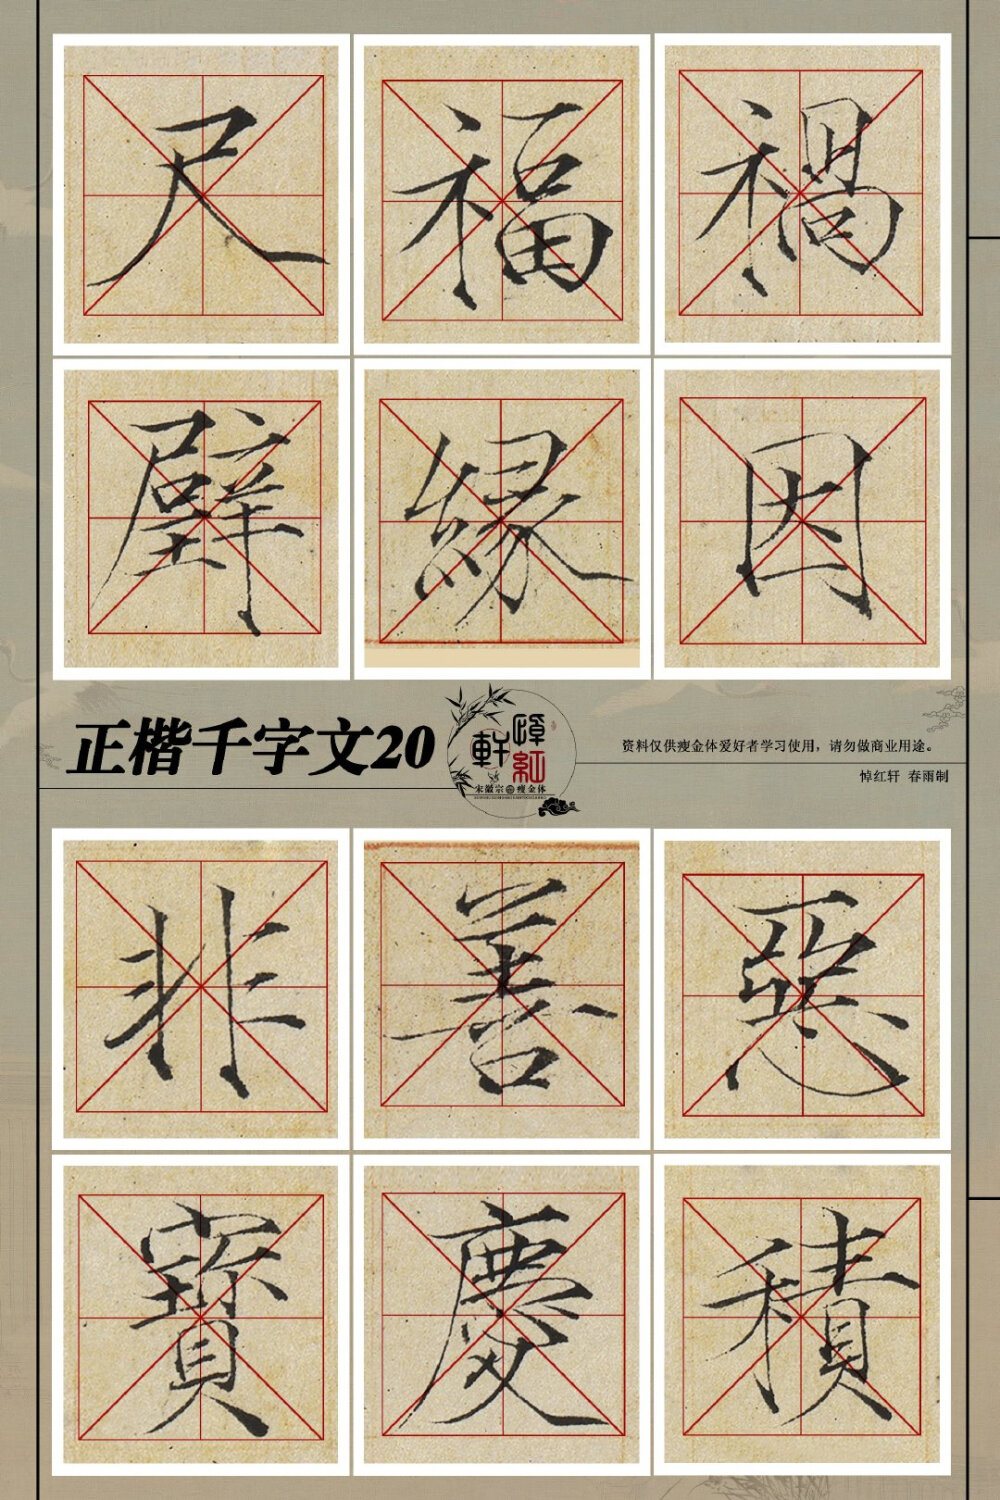 禍因惡積
福縁善慶
尺璧非寳
正楷千字文20
悼紅軒
宋徽宗瘦金体
资料仅供瘦金体爱好者学习使用，请勿做商业用途。
悼红轩 春雨制